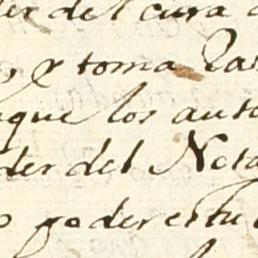 del cura
y toma
que los auto
der del Nota
poder estu